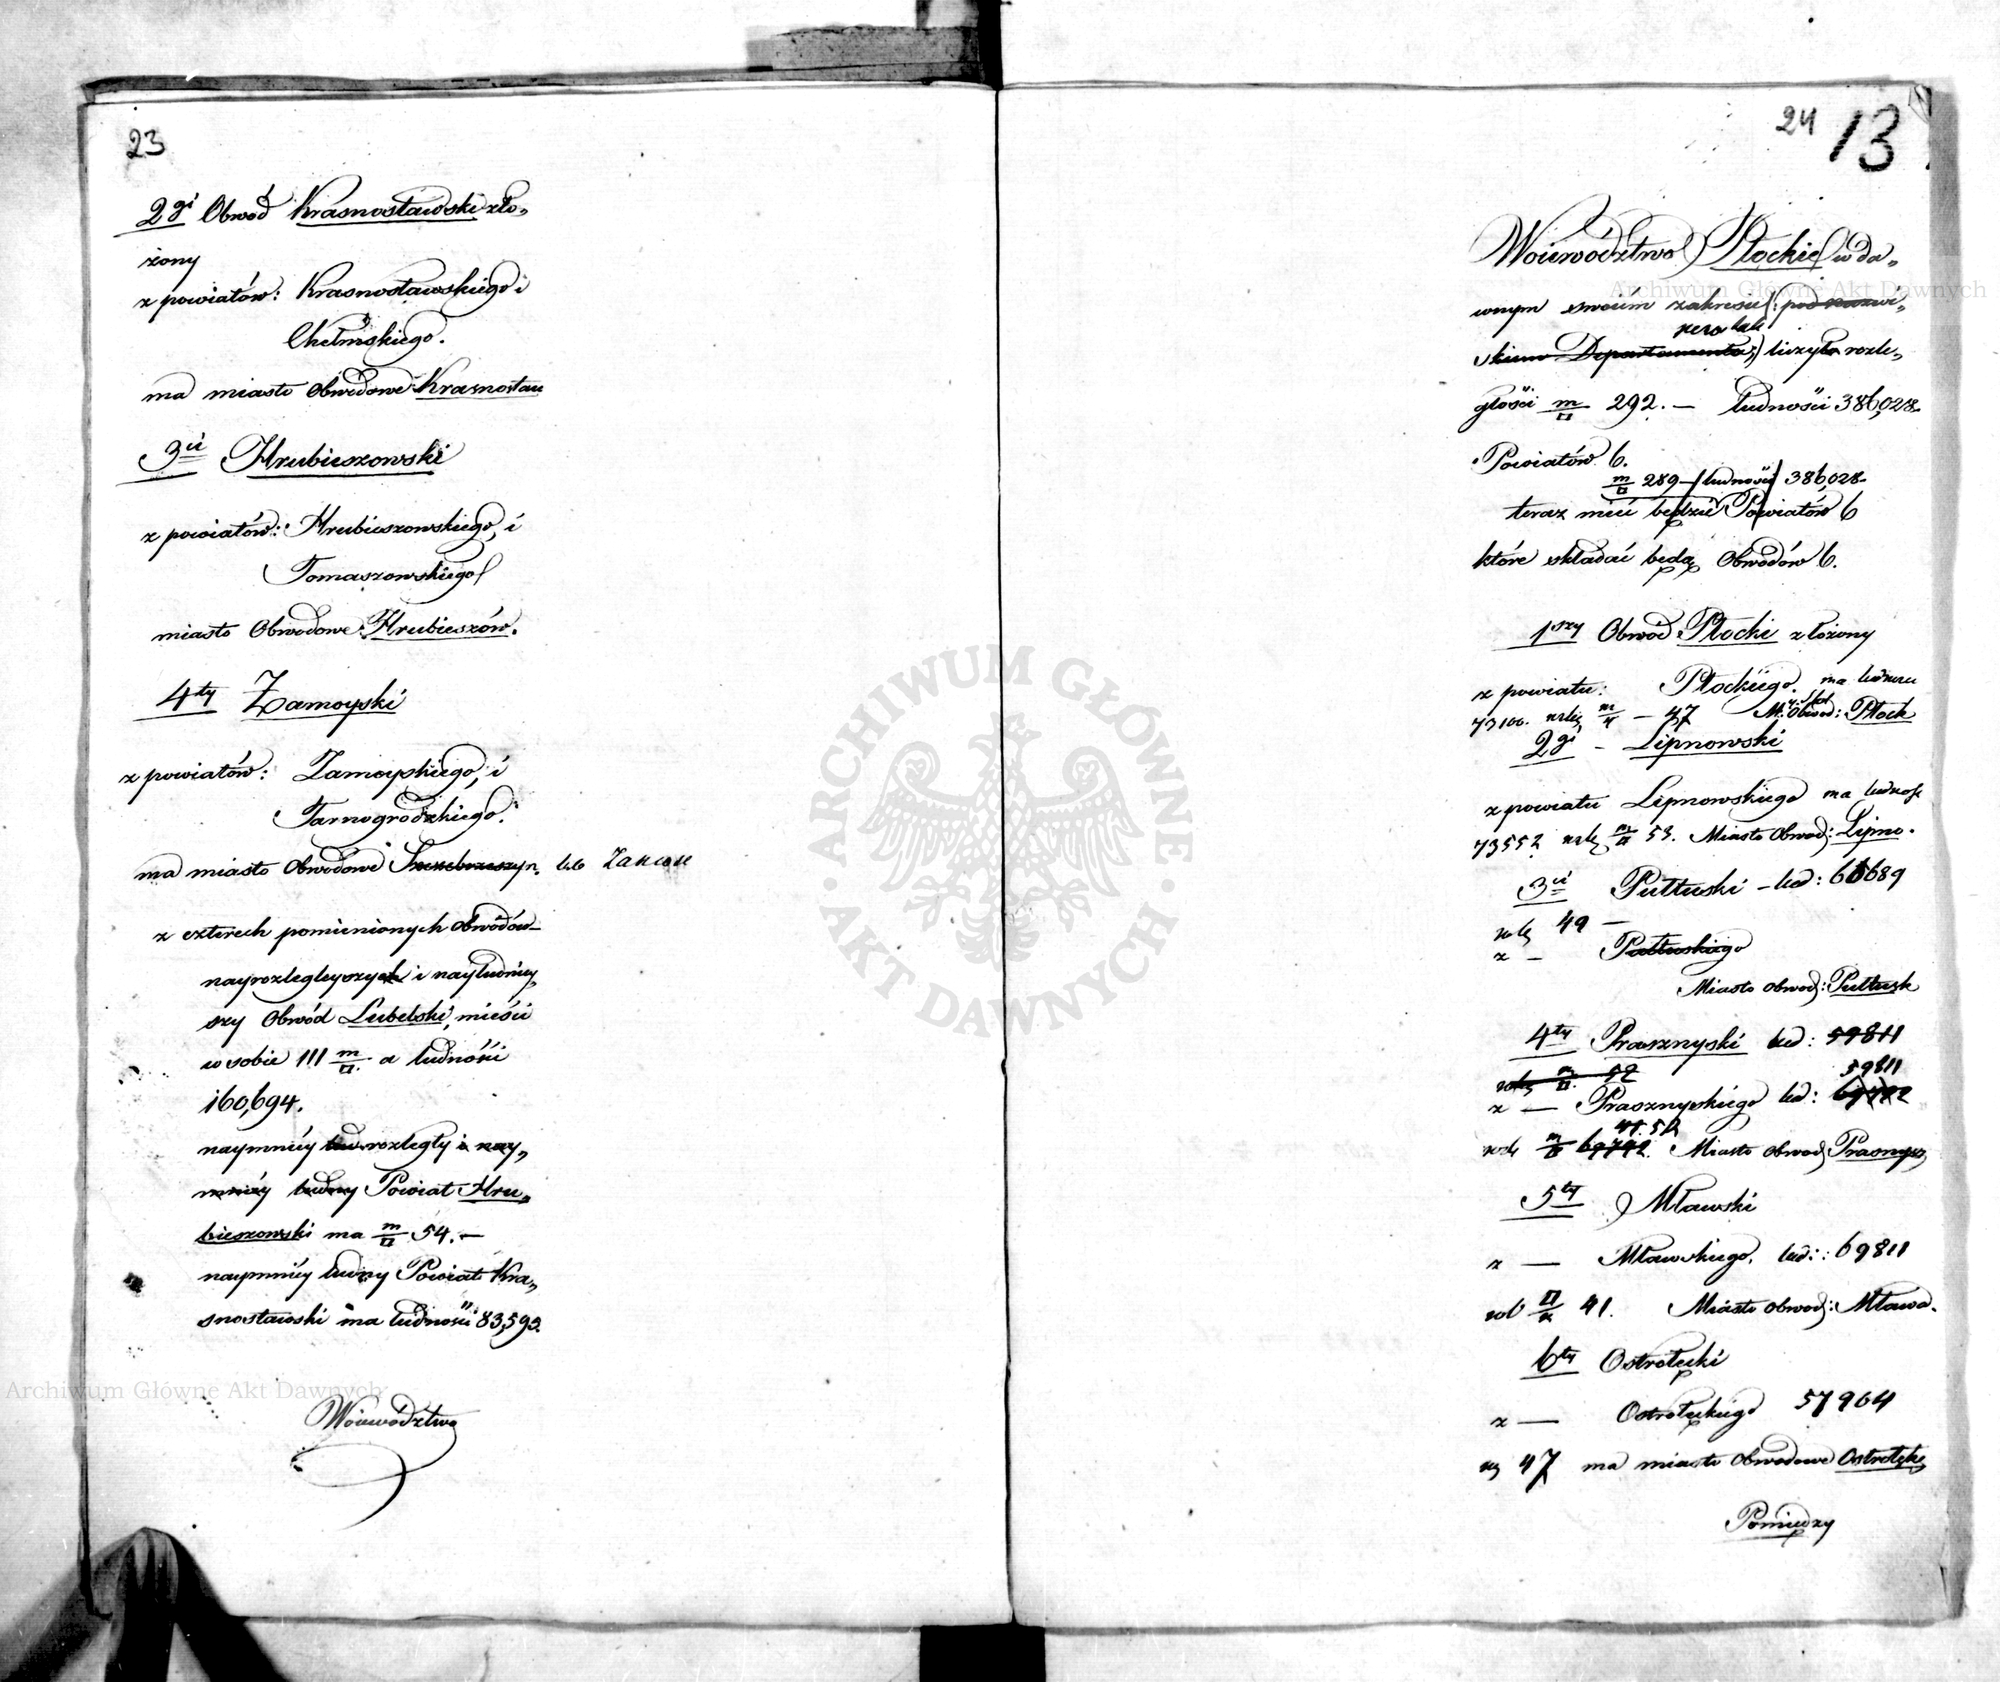 23
2gi Obwód Krasnostawski zło„
żony
z powiatów: Krasnostawskiego i
Chełmskiego.
ma miasto Obwodowe Krasnostaw
3ci Hrubieszowski
z powiatów: Hrubieszowskiego, i
Tomaszowskiego
miasto Obwodowe Hrubieszów.
4ty Zamoyski
z powiatów: Zamoyskiego, i
Tarnogrodzkiego.
ma miasto Obwodowe Szczebrzeszyn. lub
z czterech pomienionych Obwodów
nayrozlegleyszych i nayludniey„
szy Obwód Lubelski, mieści
w sobie 111 m/□ a ludności
160,694.
naymniey rozległy i nay„
mniey ludny Powiat Hru„
bieszowski ma m/□ 54.—
naymniey ludny Powiat Kra„
snostawski ma ludności 83,592
Woiewództwo
24 13
Woiewództwo Płockie w da„
wnym swoim zakresie /: pod nazwi„
skiem Departamentu :/ liczyło rozle„
głości m/□ 292. — ludności 386,028.
Powiatów 6.
m/□ 289 — ludności 386,028
teraz mieć będzie Powiatów 6
które składać będą Obwodów 6.
1szy Obwód Płocki złożony
z powiatu: Płockiego. ma ludności
73100. rozleg m/□ — 47 M: Obwod: Płock
2gi — Lipnowski
z powiatu Lipnowskiego ma ludnośc
73552 rozleg m/□ 53. Miasto Obwod: Lipno.
3ci Pułtuski — lud: 66689
rozleg 49 —
z — Pułtuskiego
Miasto obwod: Pułtusk
4ty Prasznyski lud: 59811
rozleg m/□. 52
59811
z — Prasznyskiego lud:
52
rozle m/□ 69792. Miasto obwod: Prasnysz
5ty Mławski
z — Mławskiego. lud: 69811
roz □/m 41. Miasto obwod: Mława.
6ty Ostrołęcki
z — Ostrołęckiego 57964
47 ma miasto Obwodowe Ostrołękę
Pomiędzy
ARCHIWUM GŁÓWNE AKT DAWNYCH
Archiwum Główne Akt Dawnych
Archiwum Główne Akt Dawnych